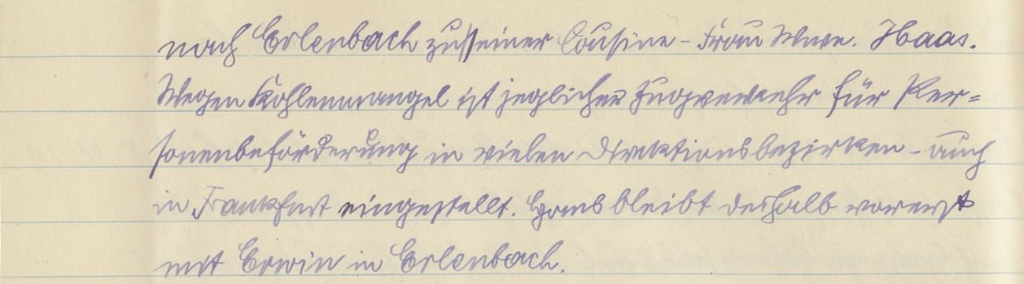 nach Erlenbach zu seiner Cousine - Frau Wwe. Haas.
Wegen Kohlenmangel ist jeglicher Zugverkehr für Per=
sonenbeförderung in vielen Direktionsbezirken - auch
in Frankfurt eingestellt. Hans bleibt deshalb vorerst
mit Erwin in Erlenbach.